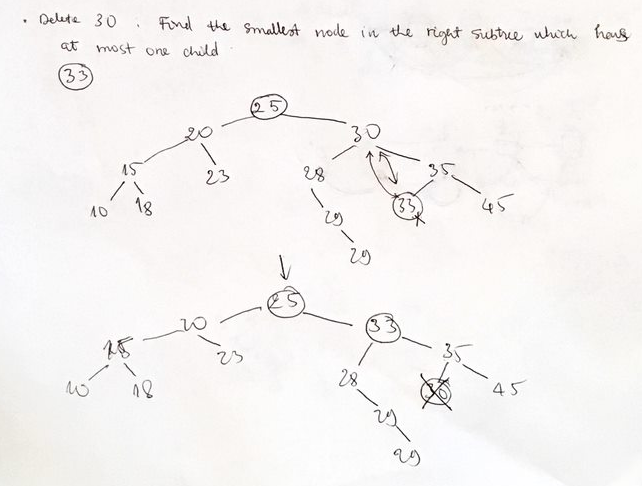 . Delete 30 : Find the smallest node in the right subtree which has
at most one child.
33
25
20 30
15 23 28 35
10 18 29 33 45
29
25
20 33
15 23 28 35
10 18 29 30 45
29